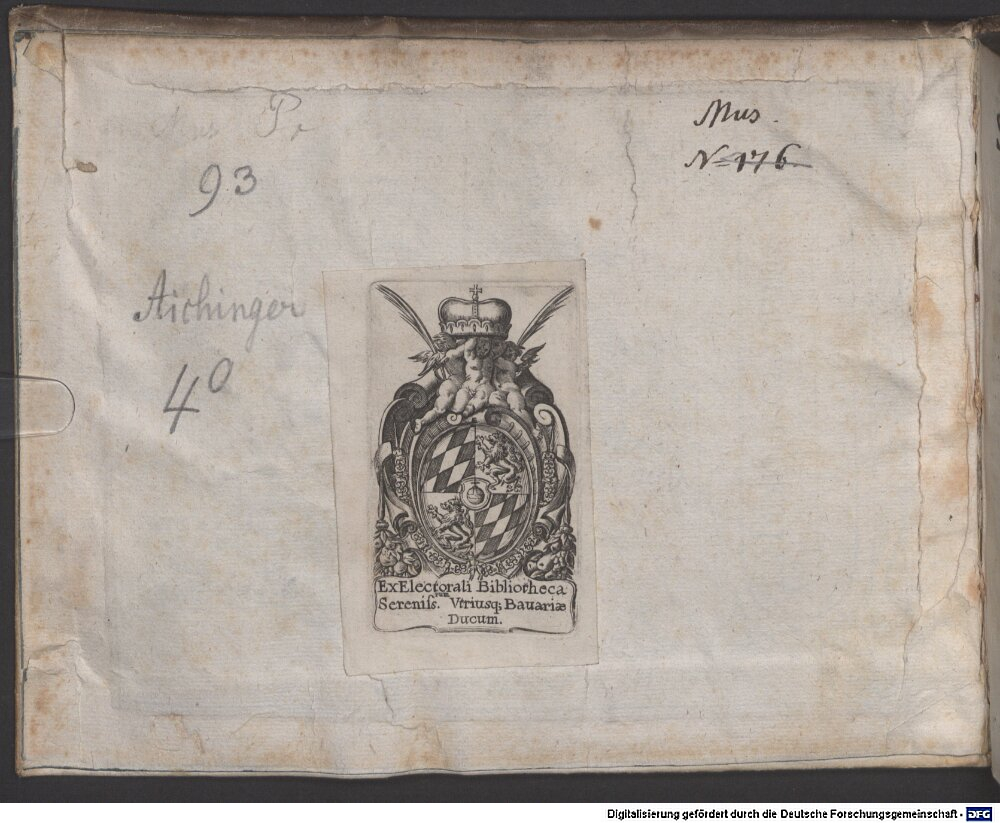 Mus Pr
93
Aichinger
4º
Mus.
N= 176
ExElectorali Bibliotheca
Sereniſs.rum Vtriusq; Bauariæ
Ducum.
Digitalisierung gefördert durch die Deutsche Forschungsgemeinschaft - DFG